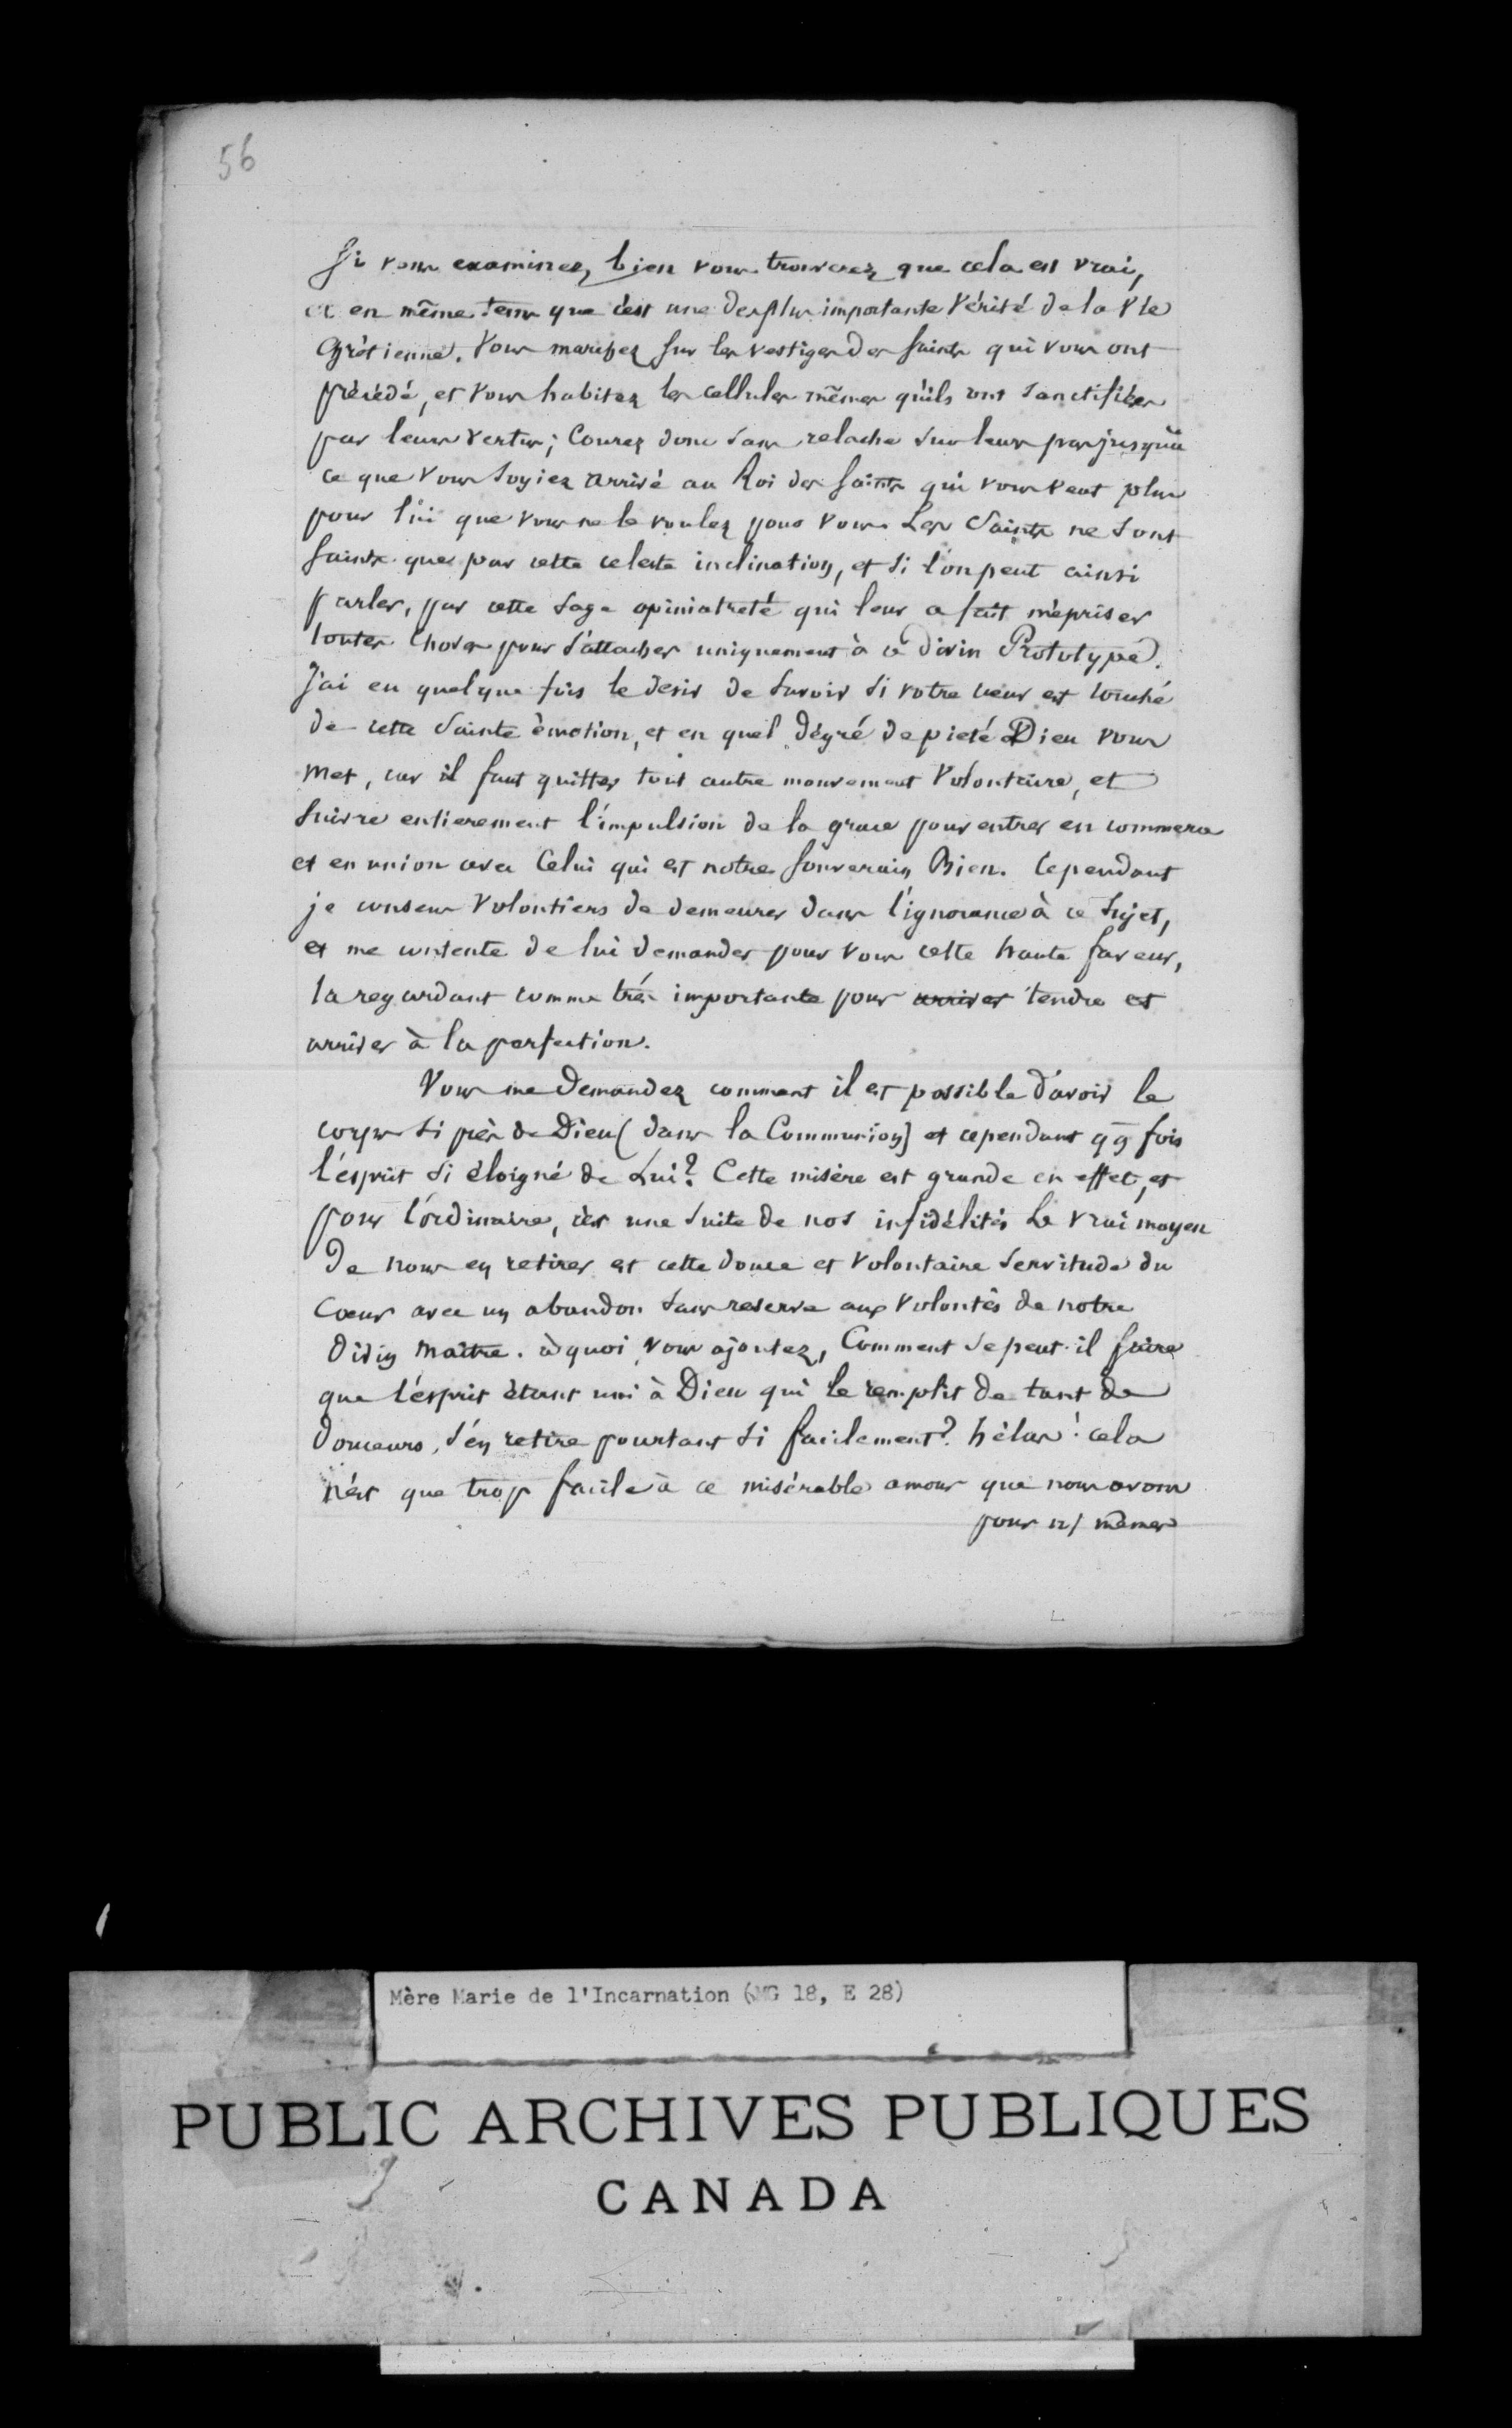 56
Si vous examinez, bien vous trouverez que cela est vrai,
et en même tems que c'est une des plus importante Vérité de la Vie
Chrétienne. Vous marchez sur les vestiges des saints qui vous ont
précédé, et vous habitez les cellules mêmes qu'ils ont sanctifiées
par leurs vertus; Courez donc sans relache sur leurs pas jusqu'à
ce que vous soyiez arrivé au Roi des saints qui vous veut plus
pour lui que vous ne le voulez pour vous. Les Saints ne sont
saints que par cette celeste inclination, et si l'on peut ainsi
parler, par cette sage opiniatreté qui leur a fait mépriser
toutes choses pour s'attacher uniquement à ce Divin Prototype.
J'ai eu quelque fois le desir de savoir si votre cœur est touché
de cette Sainte émotion, et en quel dégré de pieté Dieu vous
met, car il faut quitter tout autre mouvement Volontaire, et
suivre entierement l'impulsion de la grace pour entrer en commerce
et en union avec Celui qui est notre souverain Bien. Cependant
je consens Volontiers de demeurer dans l'ignorance à ce sujet,
et me contente de lui demander pour vous cette haute faveur,
la regardant comme trés importante pour arriver tendre et
arriver à la perfection.
Vous me demandez comment il est possible d'avoir le
corps si près de Dieu (dans la Communion) et cependant qq fois
l'esprit si éloigné de Lui? Cette misère est grande en effet, et
pour l'ordinaire, c'est une suite de nos infidélités Le vrai moyen
de nous en retirer est cette douce et volontaire servitude du
Cœur avec un abandon sans reserve aux Volontés de notre
Divin Maître. à quoi vous ajoutez, Comment se peut-il faire
que l'esprit étant uni à Dieu qui le remplit de tant de
douceurs, s'en retire pourtant si facilement? hélas! cela
n'est que trop facile à ce misérable amour que nous avons
pour n/ mêmes
Mère Marie de l'Incarnation (MG 18, E 28)
PUBLIC ARCHIVES PUBLIQUES
CANADA